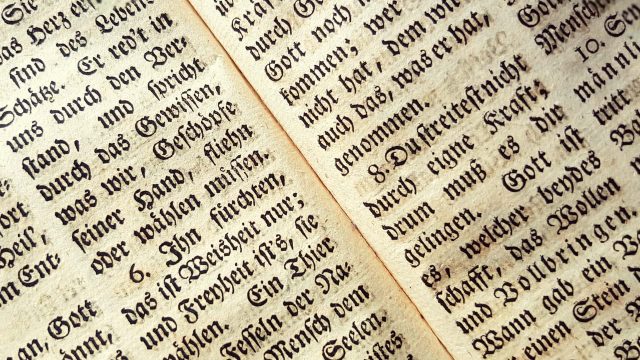 Gott
Sie
ſind des Lebens
Schätze. Er red't in
uns durch den Ver-
ſtand, und ſpricht
durch das Gewiſſen,
was wir, Geſchöpfe
ſeiner Hand, fliehn
oder wählen müſſen.
6. Ihn fürchten,
das iſt Weisheit nur;
und Freyheit iſts, ſie
wählen. Ein Thier
Feſſeln der Na-
Menſch dem
Seelen.
durch
Gott noch
kommen; wer
nicht hat, dem
auch das, was er hat,
genommen.
8. Du ſtreiteſt nicht
durch eigne Kraft;
drum muß es dir
gelingen. Gott iſt
es, welcher beydes
ſchafft, das Wollen
und Vollbringen.
Wann gab ein
einen Stein
10.